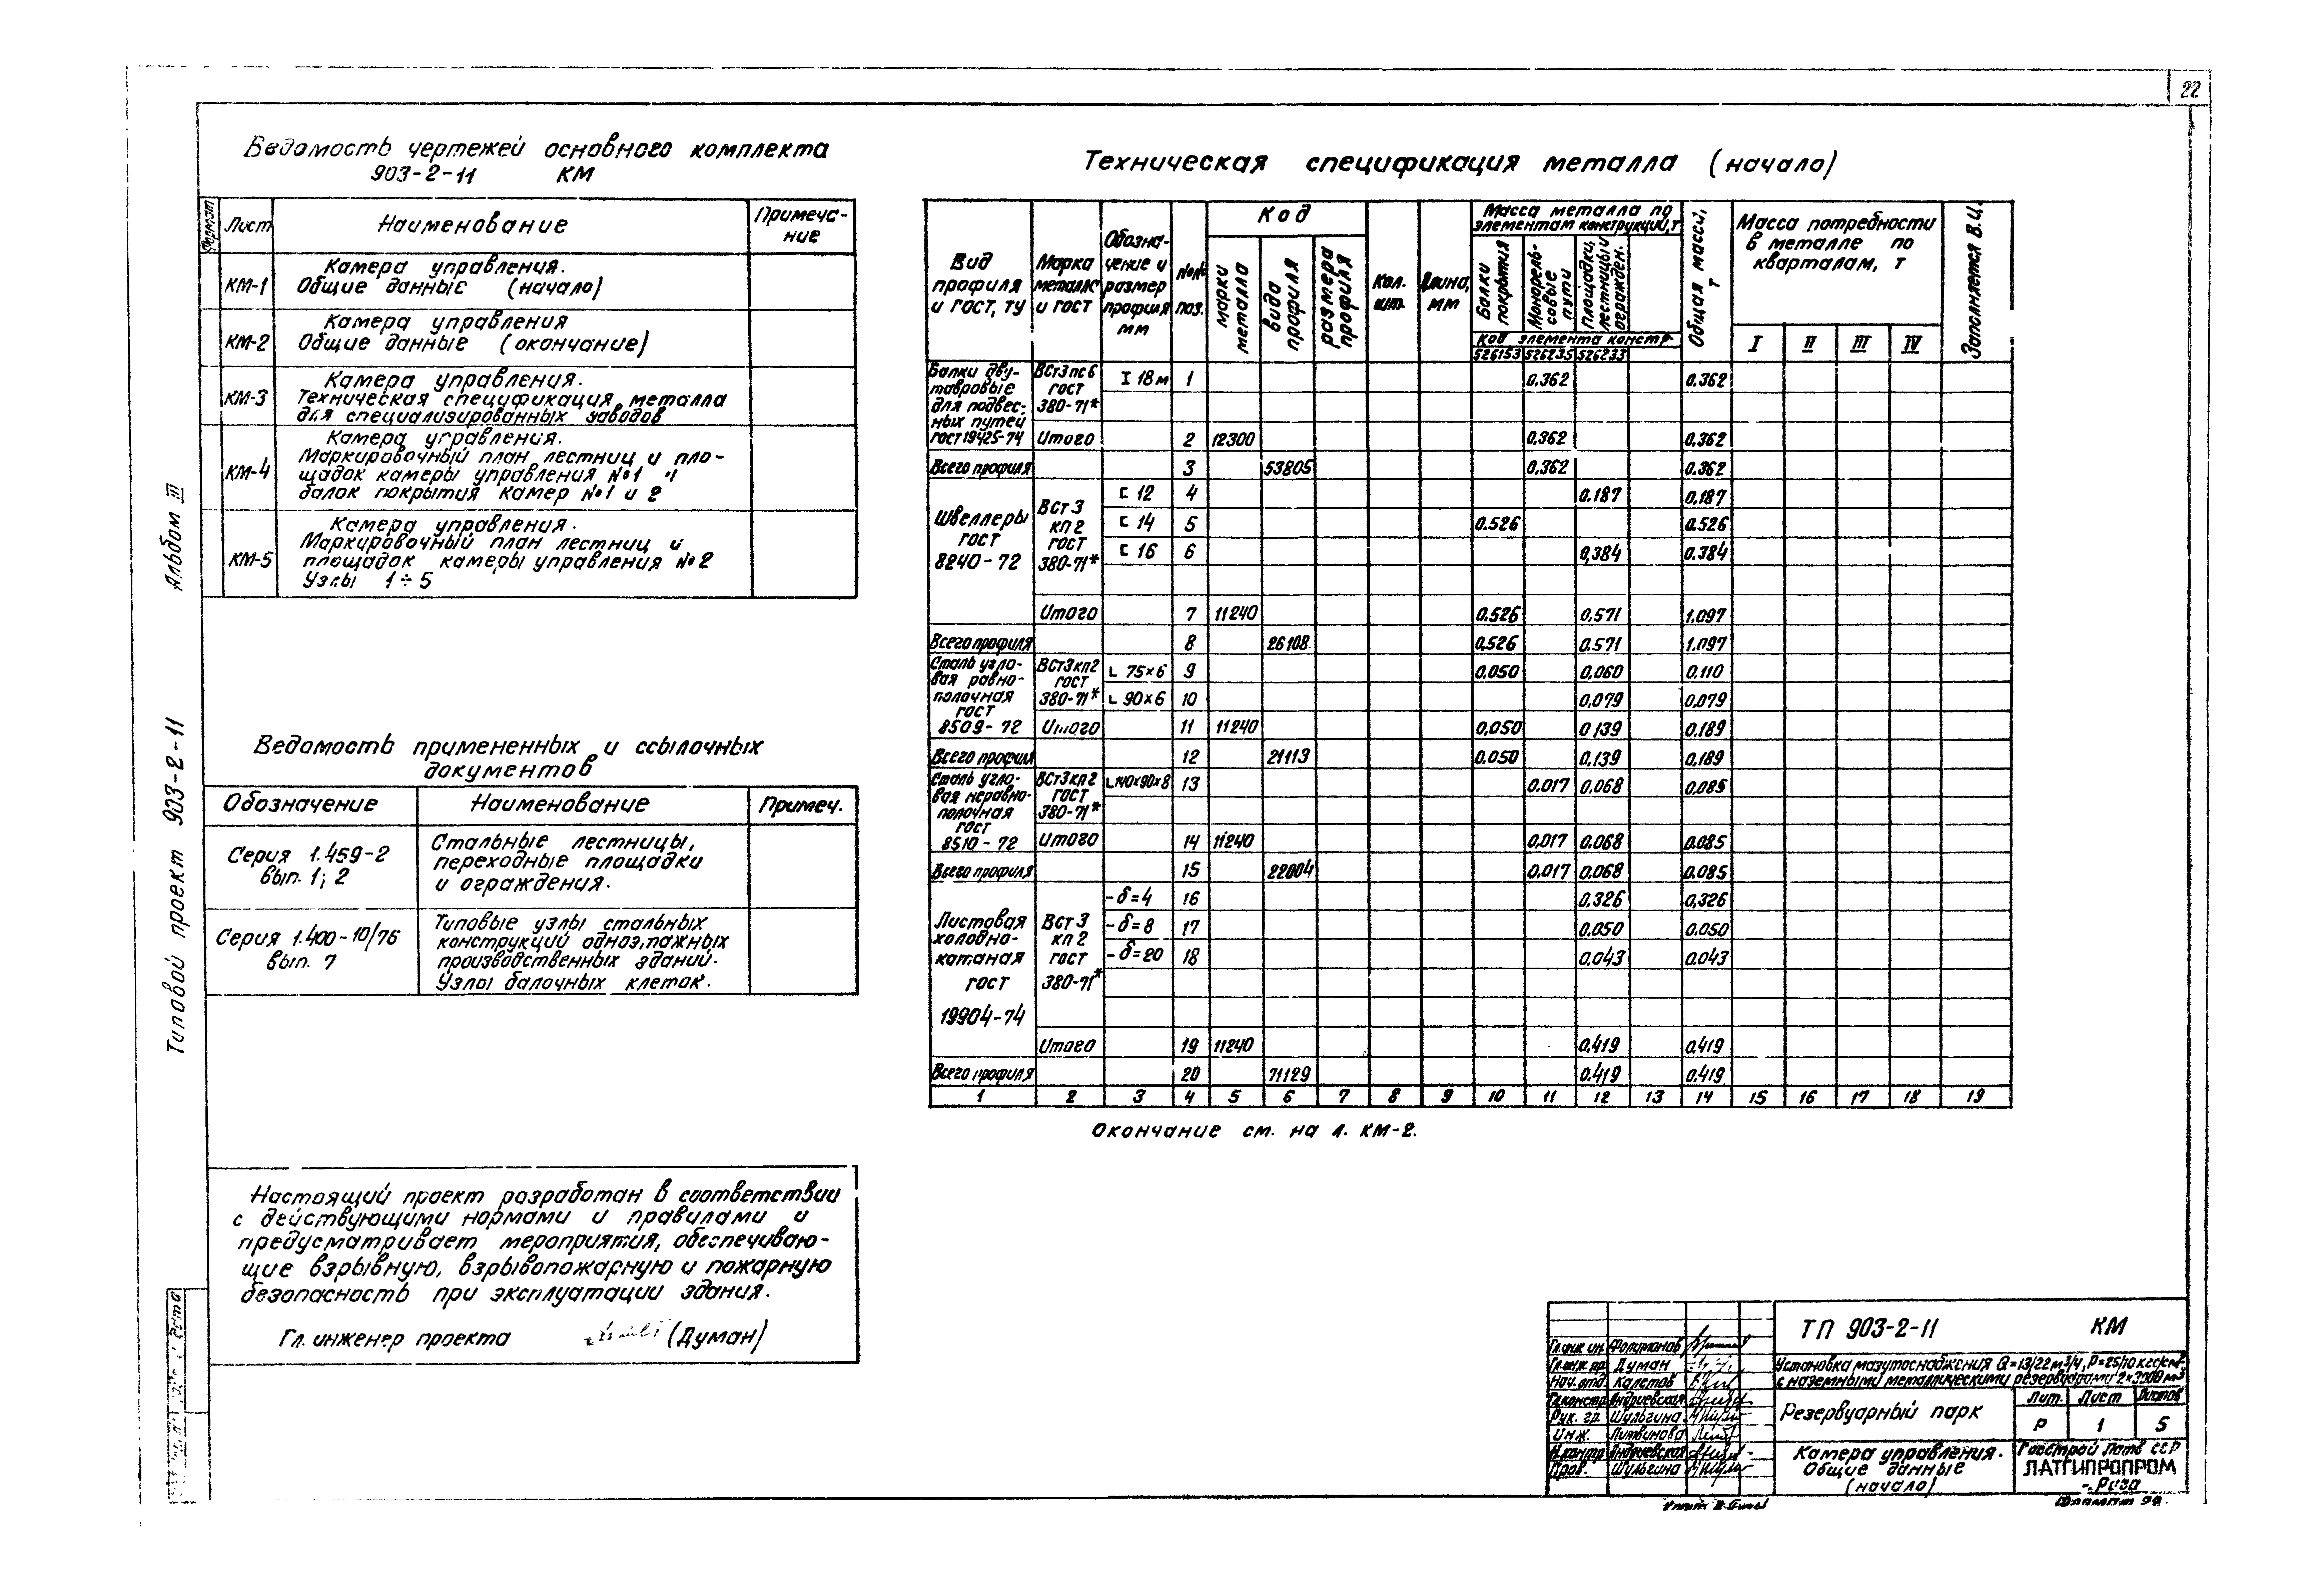 22
Ведомость чертежей основного комплекта
903-2-11 КМ
Формат Лист Наименование Примеча-
ние
КМ-1 Камера управления.
Общие данные (начало)
КМ-2 Камера управления
Общие данные (окончание)
КМ-3 Камера управления.
Техническая спецификация металла
для специализированных заводов
КМ-4 Камера управления.
Маркировочный план лестниц и пло-
щадок камеры управления №1 и
балок покрытия камер №1 и 2
КМ-5 Камера управления.
Маркировочный план лестниц и
площадок камеры управления №2
Узлы 1÷5
Ведомость примененных и ссылочных
документов
Обозначение Наименование Примеч.
Серия 1.459-2
вып. 1; 2
Стальные лестницы,
переходные площадки
и ограждения.
Серия 1.400-10/76
вып. 7
Типовые узлы стальных
конструкций одноэтажных
производственных зданий.
Узлы балочных клеток.
Настоящий проект разработан в соответствии
с действующими нормами и правилами и
предусматривает мероприятия, обеспечиваю-
щие взрывную, взрывопожарную и пожарную
безопасность при эксплуатации здания.
Гл. инженер проекта (Думан)
Альбом III
Типовой проект 903-2-11
Техническая спецификация металла (начало)
Вид
профиля
и ГОСТ, ТУ
Марка
металла
и ГОСТ
Обозна-
чение и
размер
профиля
мм
№№
поз.
Код
марки
металла
вида
профиля
размера
профиля
Кол.
шт.
Длина,
мм
Масса металла по
элементам конструкций, т
Балки
покрытия
Монорель-
совые
пути
Площадки,
лестницы и
огражден.
Код элемента констр.
526153 526235 526233
Общая масса,
т
Масса потребности
в металле по
кварталам, т
I II III IV
Заполняется В.Ц.
Балки дву-
тавровые
для подвес-
ных путей
ГОСТ 19425-74
ВСт3пс6
ГОСТ
380-71*
I 18м 1 0.362 0.362
Итого 2 12300 0.362 0.362
Всего профиля 3 53805 0.362 0.362
Швеллеры
ГОСТ
8240-72
ВСт3
кп2
ГОСТ
380-71*
[ 12 4 0.187 0.187
[ 14 5 0.526 0.526
[ 16 6 0.384 0.384
Итого 7 11240 0.526 0.571 1.097
Всего профиля 8 26108 0.526 0.571 1.097
Сталь угло-
вая равно-
полочная
ГОСТ
8509-72
ВСт3кп2
ГОСТ
380-71*
L 75×6 9 0.050 0.060 0.110
L 90×6 10 0.079 0.079
Итого 11 11240 0.050 0 139 0.189
Всего профиля 12 21113 0.050 0.139 0.189
Сталь угло-
вая неравно-
полочная
ГОСТ
8510-72
ВСт3кп2
ГОСТ
380-71*
L 140×90×8 13 0.017 0.068 0.085
Итого 14 11240 0.017 0.068 0.085
Всего профиля 15 22004 0.017 0.068 0.085
Листовая
холодно-
катаная
ГОСТ
19904-74
ВСт3
кп2
ГОСТ
380-71*
-δ=4 16 0.326 0.326
-δ=8 17 0.050 0.050
-δ=20 18 0.043 0.043
Итого 19 11240 0.419 0.419
Всего профиля 20 71129 0.419 0.419
1 2 3 4 5 6 7 8 9 10 11 12 13 14 15 16 17 18 19
Окончание см. на л. КМ-2.
Гл.инж.пр. Думан
Нач. отд. Калетов
Гл.констр. Андриевская
Рук. гр. Шульгина
Инж. Литвинова
Н.контр. Андриевская
Пров. Шульгина
ТП 903-2-11 КМ
Установка мазутоснабжения Q=13/22 м³/ч, P=25/10 кгс/см²
с наземными металлическими резервуарами 2×3000 м³
Резервуарный парк
Лит. Лист Листов
Р 1 5
Камера управления.
Общие данные
(начало)
Госстрой Латв ССР
ЛАТГИПРОПРОМ
г. Рига
Формат